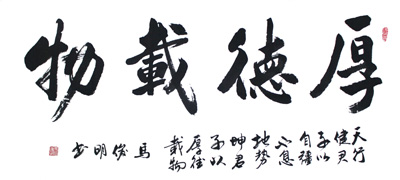 厚德載物
天行
健君
子以
自彊
不息
地势
坤君
子以
厚德
載物
馬俊明书